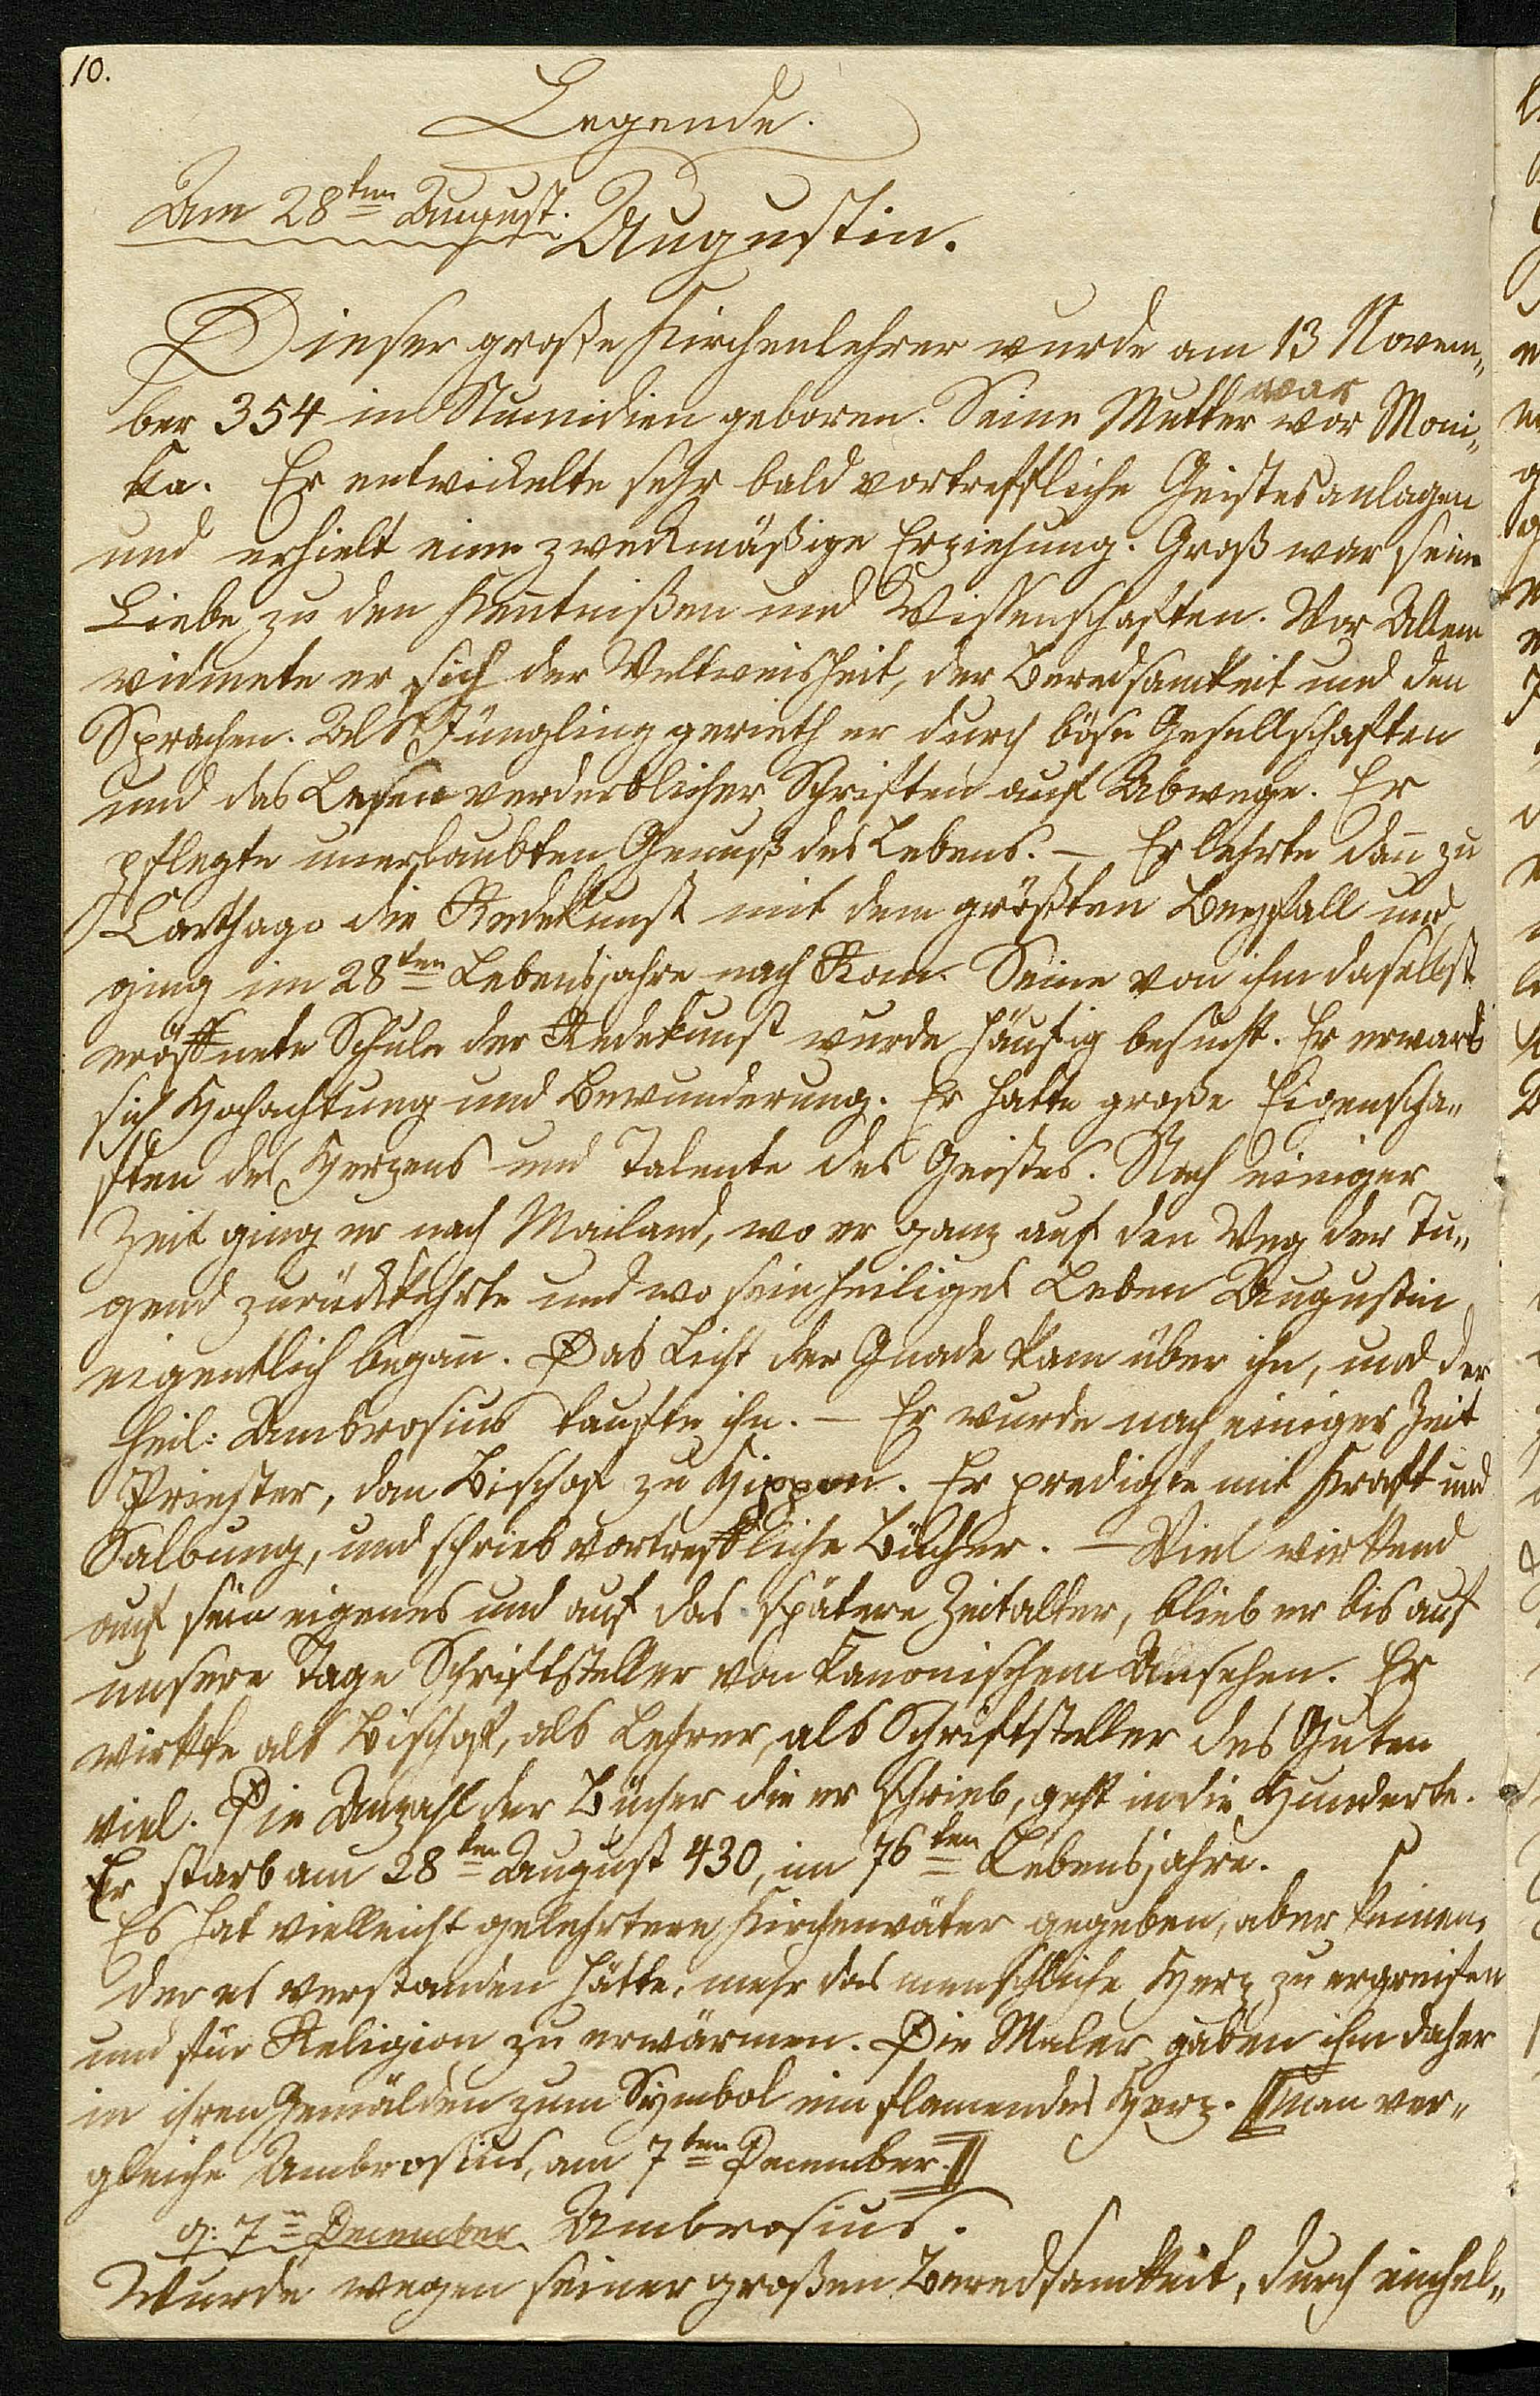 10.
Legende.
Am 28ten August.
Augustin.
Dieser große Kirchenlehrer wurde am 13 Novem„
war
ber 354 in Numidien geboren. Seine Mutter war Moni„
ka. Er entwickelte sehr bald vortreffliche Geistesanlagen
und erhielt eine zweckmäßige Erziehung. Groß war seine
Liebe zu den Keñtnißen und Wissenschaften. Vor Allem
widmete er sich der Weltweisheit, der Beredsamkeit und den
Sprachen. Als Jüngling gerieth er durch böse Gesellschaften
und das Lesen verderblicher Schriften auf Abwege. Er
pflegte unerlaubten Genuß des Lebens. — Er lehrte dañ zu
Carthago die Redekunst mit dem größten Beyfall und
ging im 28ten Lebensjahre nach Rom. Seine von ihm daselbst
eröffnete Schule der Redekunst wurde häufig besucht. Er erwarb
sich Hochachtung und Bewunderung. Er hatte große Eigenscha„
ften des Herzens und Talente des Geistes. Nach einiger
Zeit ging er nach Mailand, wo er ganz auf den Weg der Tu„
gend zurückkehrte und wo sein heiliges Leben Augustin
eigentlich begañ. Das Licht der Gnade kam über ihn, und der
heil: Ambrosius taufte ihn. — Er wurde nach einiger Zeit
Priester, dan Bischof zu Hippon. Er predigte mit Kraft und
Salbung, und schrieb vortreffliche Bücher. — Viel wirkend
auf sein eigenes und auf das spätere Zeitalter, blieb er bis auf
unsere Tage Schriftsteller von kanonischem Ansehen. Er
wirkte als Bischof, als Lehrer, als Schriftsteller des Guten
viel. Die Anzahl der Bücher die er schrieb, geht in die Hunderte.
Er starb am 28ten August 430, im 76ten Lebensjahre.
Es hat vielleicht gelehrtere Kirchenväter gegeben, aber keinen,
der es verstanden hätte, mehr das menschliche Herz zu ergreifen
und für Religion zu erwärmen. Die Maler gaben ihm daher
in ihren Gemälden zum Symbol ein flamendes Herz. [man ver„
gleiche Ambrosius, am 7ten December.]
a: 7n December Ambrosius.
Wurde wegen seiner großen Beredsamkeit, durch einhel„